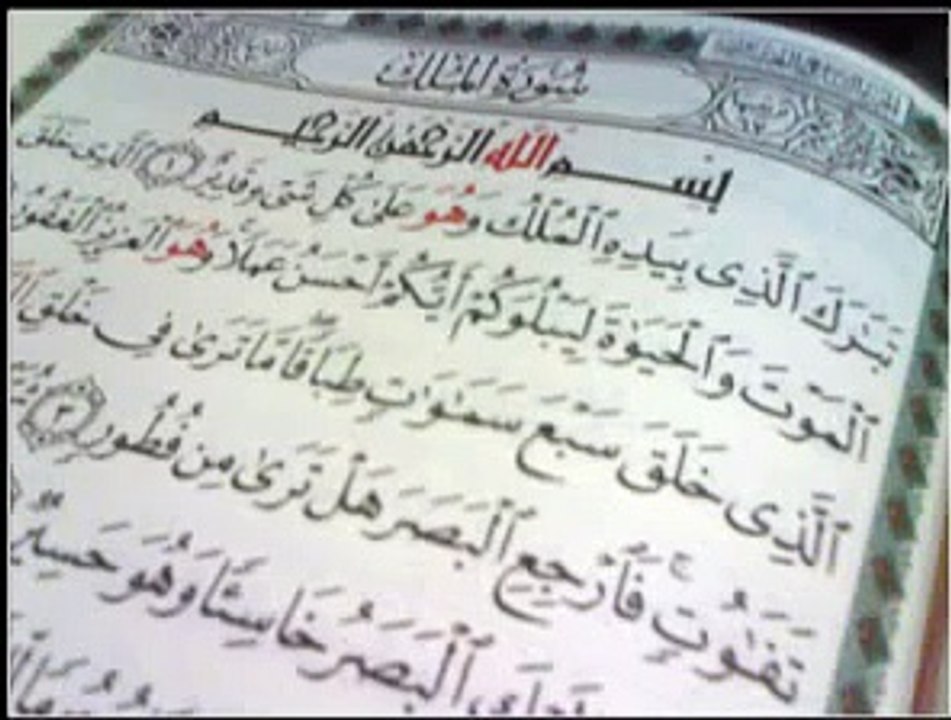 سُورَةُ الْمُلْكِ
بِسْمِ اللَّهِ الرَّحْمَٰنِ الرَّحِيمِ
تَبَٰرَكَ ٱلَّذِى بِيَدِهِ ٱلْمُلْكُ وَهُوَ عَلَىٰ كُلِّ شَىْءٍ قَدِيرٌ ١ ٱلَّذِى خَلَقَ
ٱلْمَوْتَ وَٱلْحَيَوٰةَ لِيَبْلُوَكُمْ أَيُّكُمْ أَحْسَنُ عَمَلًا وَهُوَ ٱلْعَزِيزُ ٱلْغَفُورُ
ٱلَّذِى خَلَقَ سَبْعَ سَمَٰوَٰتٍ طِبَاقًا مَّا تَرَىٰ فِى خَلْقِ
تَفَٰوُتٍ فَٱرْجِعِ ٱلْبَصَرَ هَلْ تَرَىٰ مِن فُطُورٍ ٣
ٱلْبَصَرُ خَاسِئًا وَهُوَ